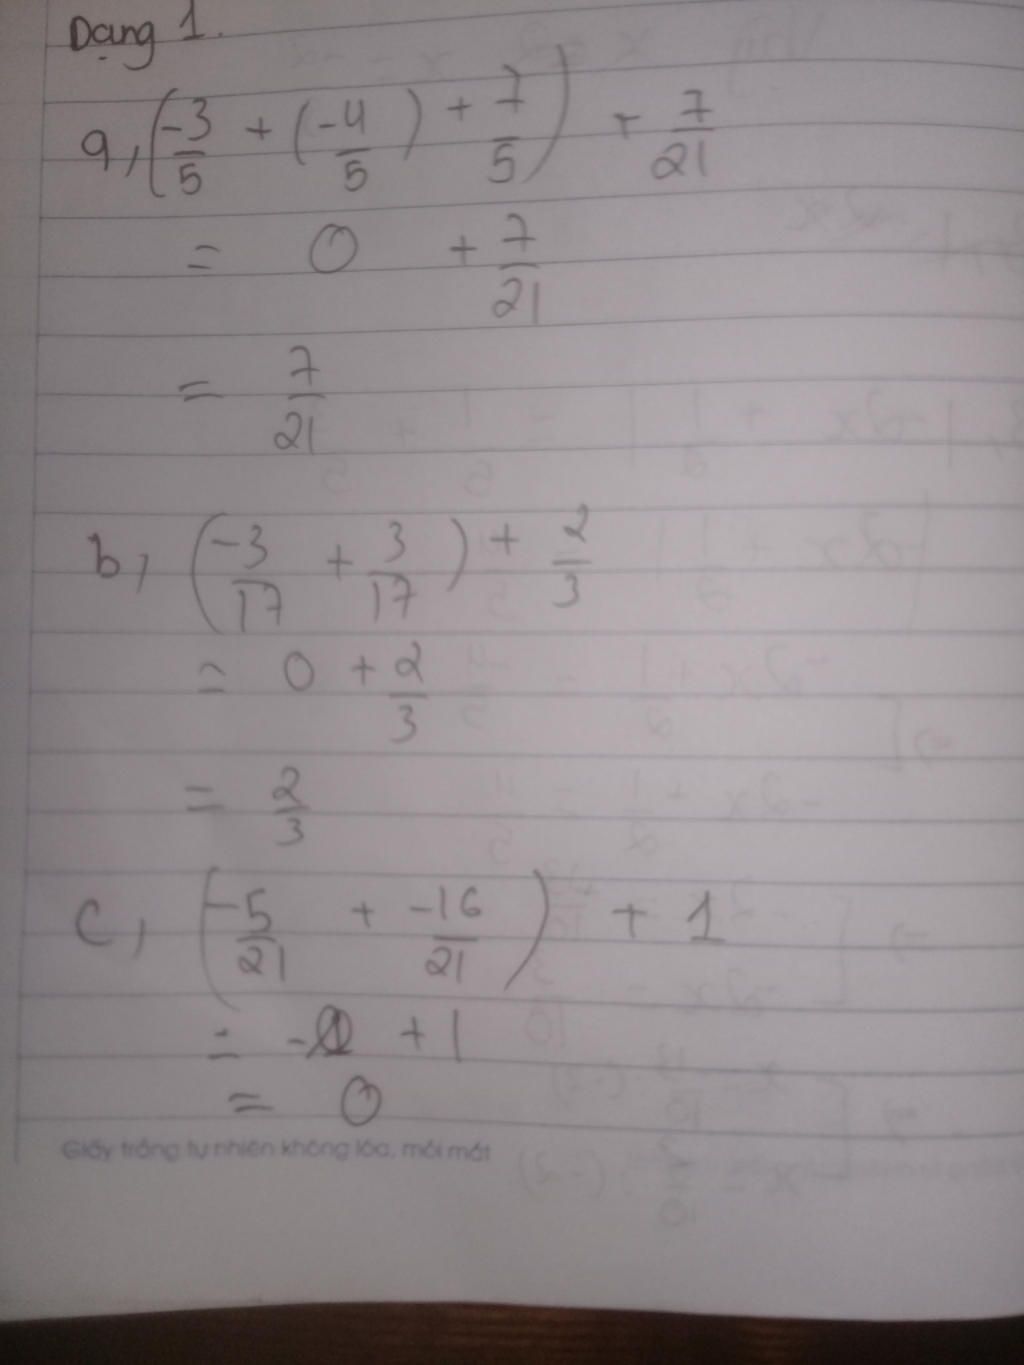 Dạng 1.
a, (-3/5 + (-4/5) + 7/5) + 7/21
= 0 + 7/21
= 7/21
b, (-3/17 + 3/17) + 2/3
= 0 + 2/3
= 2/3
c, (-5/21 + -16/21) + 1
= -1 + 1
= 0
Giấy trắng tự nhiên không lóa, mỏi mắt